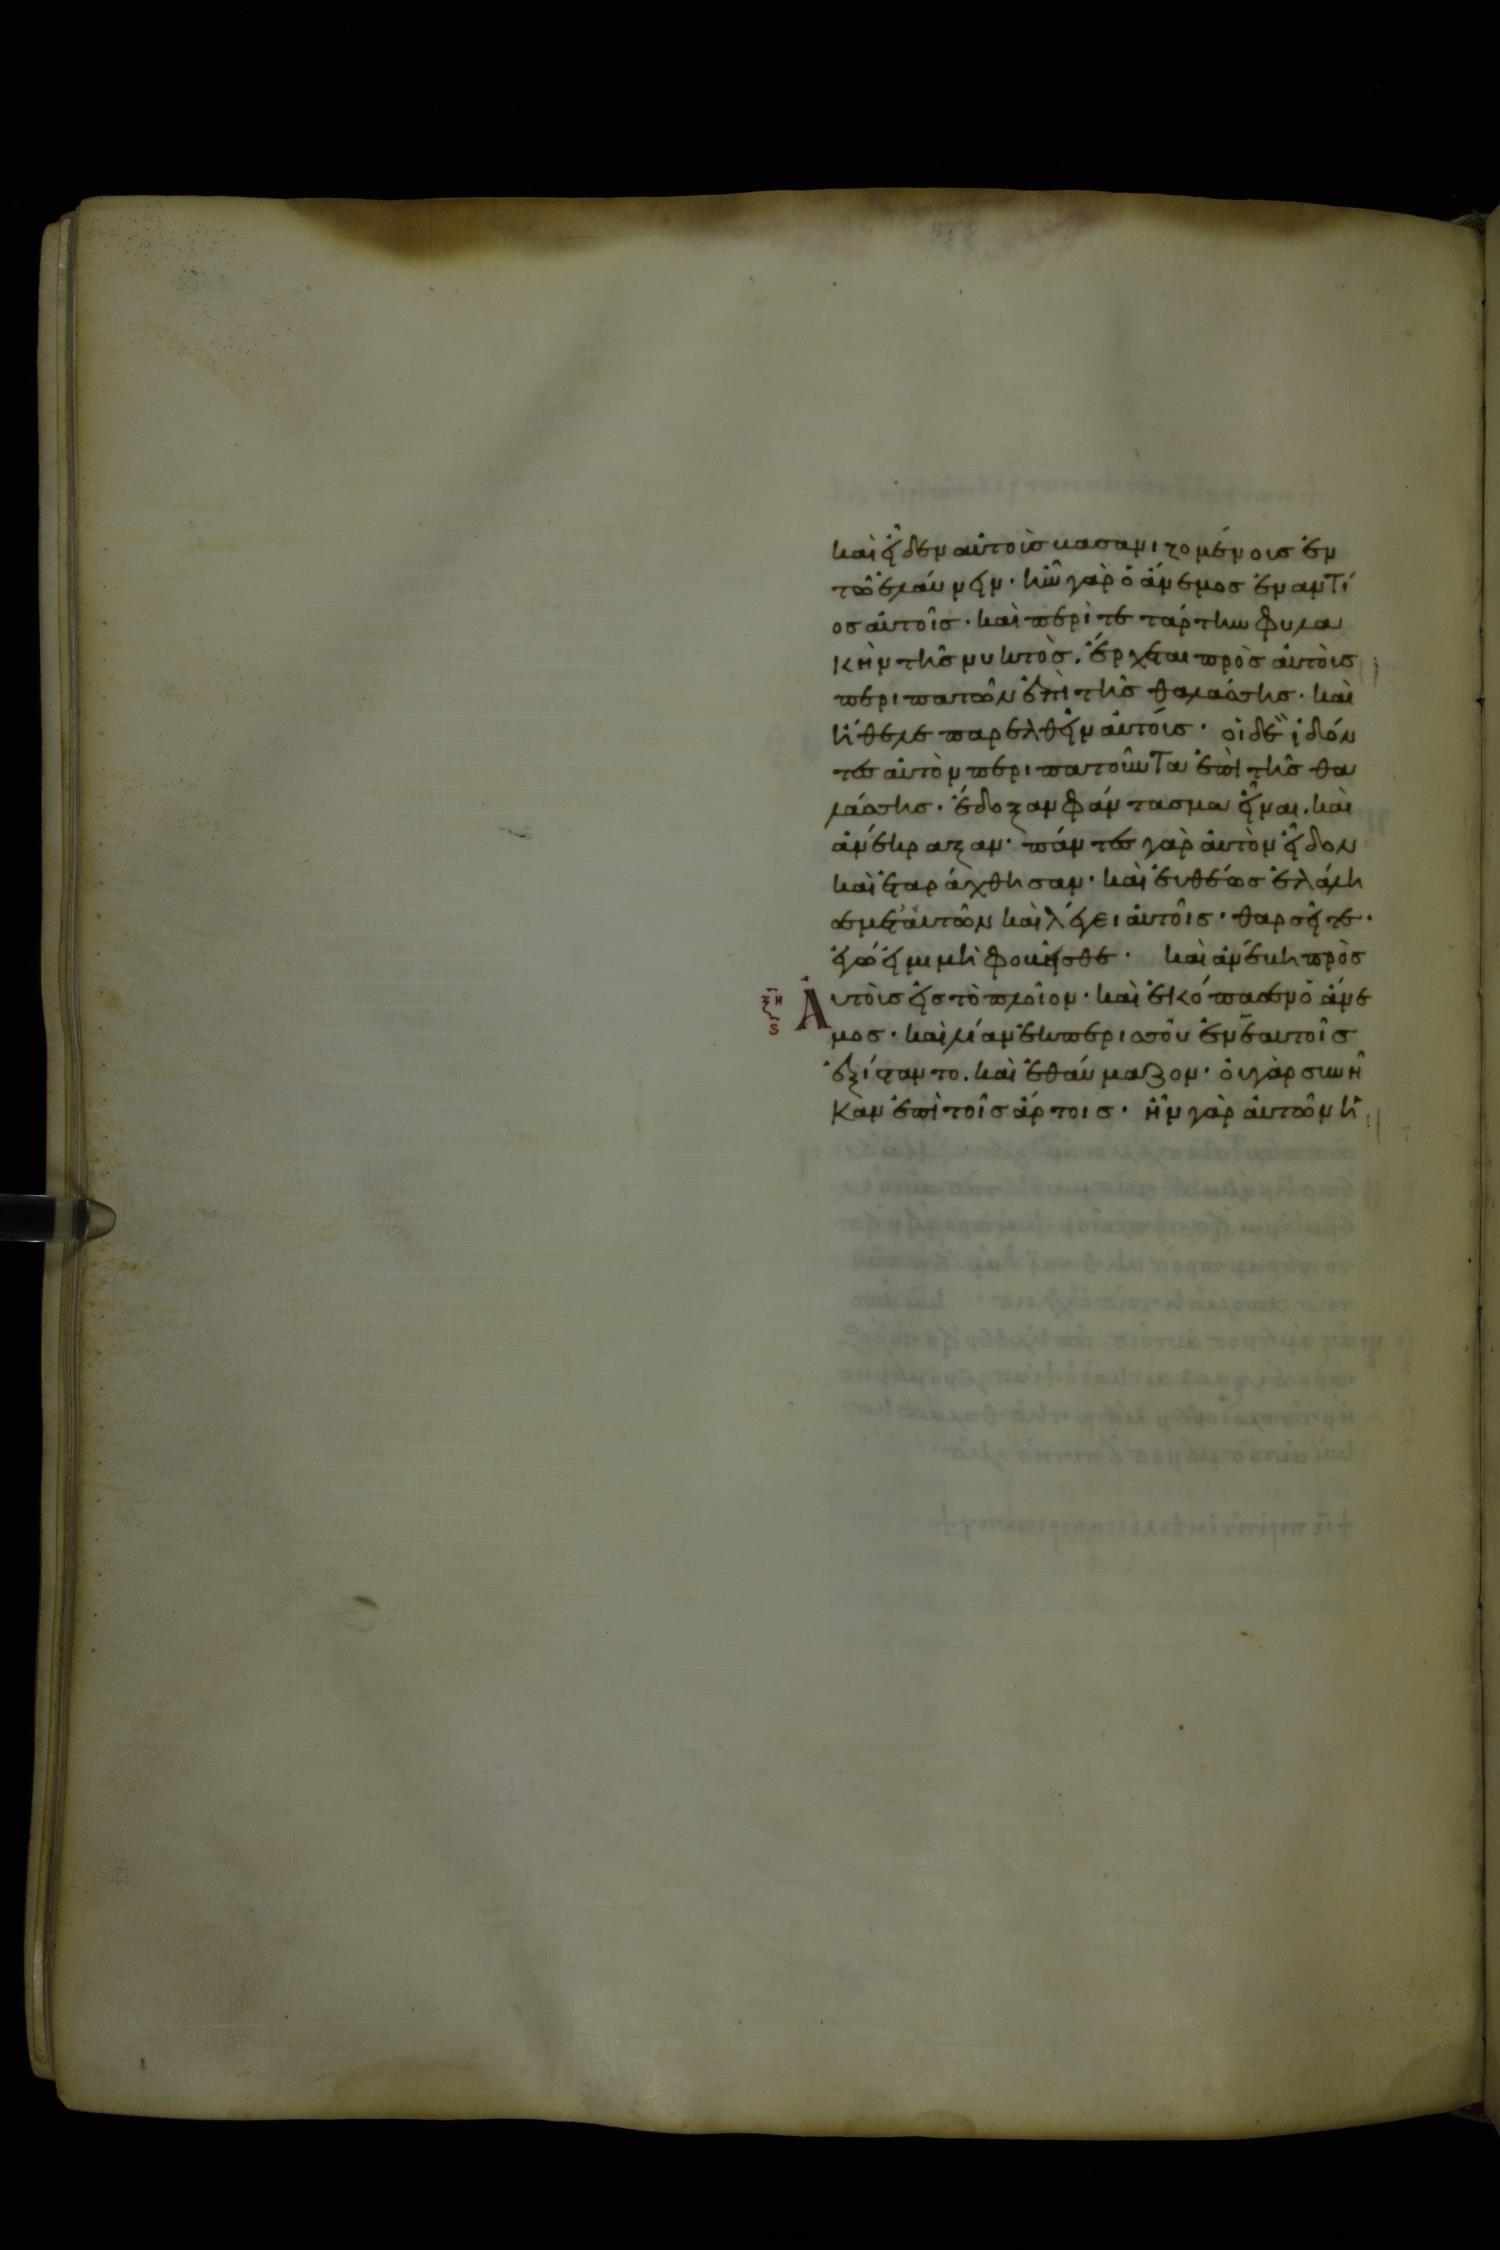 καὶ εἶδεν αὐτοὺσ βασανιζομένουσ ἐν
τῶ ἐλαύνειν· ἦν γὰρ ὁ ἄνεμοσ ἐναντί
οσ αὐτοῖσ· καὶ περὶ τετάρτην φυλα
κὴν τῆσ νυκτὸσ. ἔρχεται πρὸσ αὐτοὺσ
περιπατῶν ἐπὶ τῆσ θαλάσσησ· καὶ
ἤθελε παρελθεῖν αὐτούσ· οἱ δὲ ἰδόν
τεσ αὐτὸν περιπατοῦντα ἐπὶ τῆσ θα
λάσσησ· ἔδοξαν φάντασμα εἶναι. καὶ
ἀνέκραξαν· πάντεσ γὰρ αὐτὸν εἶδον
καὶ ἐταράχθησαν· καὶ εὐθέωσ ἐλάλη
σε μετ' αὐτῶν καὶ λέγει αὐτοῖσ· θαρσεῖτε·
ἐγώ εἰμι μὴ φοβεῖσθε· καὶ ἀνέβη πρὸσ
ξη ϛ Αὐτοὺσ εἰσ τὸ πλοῖον· καὶ ἐκόπασεν ὁ ἄνε
μοσ· καὶ λίαν ἐκπερισσοῦ ἐν ἑαυτοῖσ
ἐξίσταντο. καὶ ἐθαύμαζον· οὐ γὰρ συνῆ
καν ἐπὶ τοῖσ ἄρτοισ· ἦν γὰρ αὐτῶν ἡ